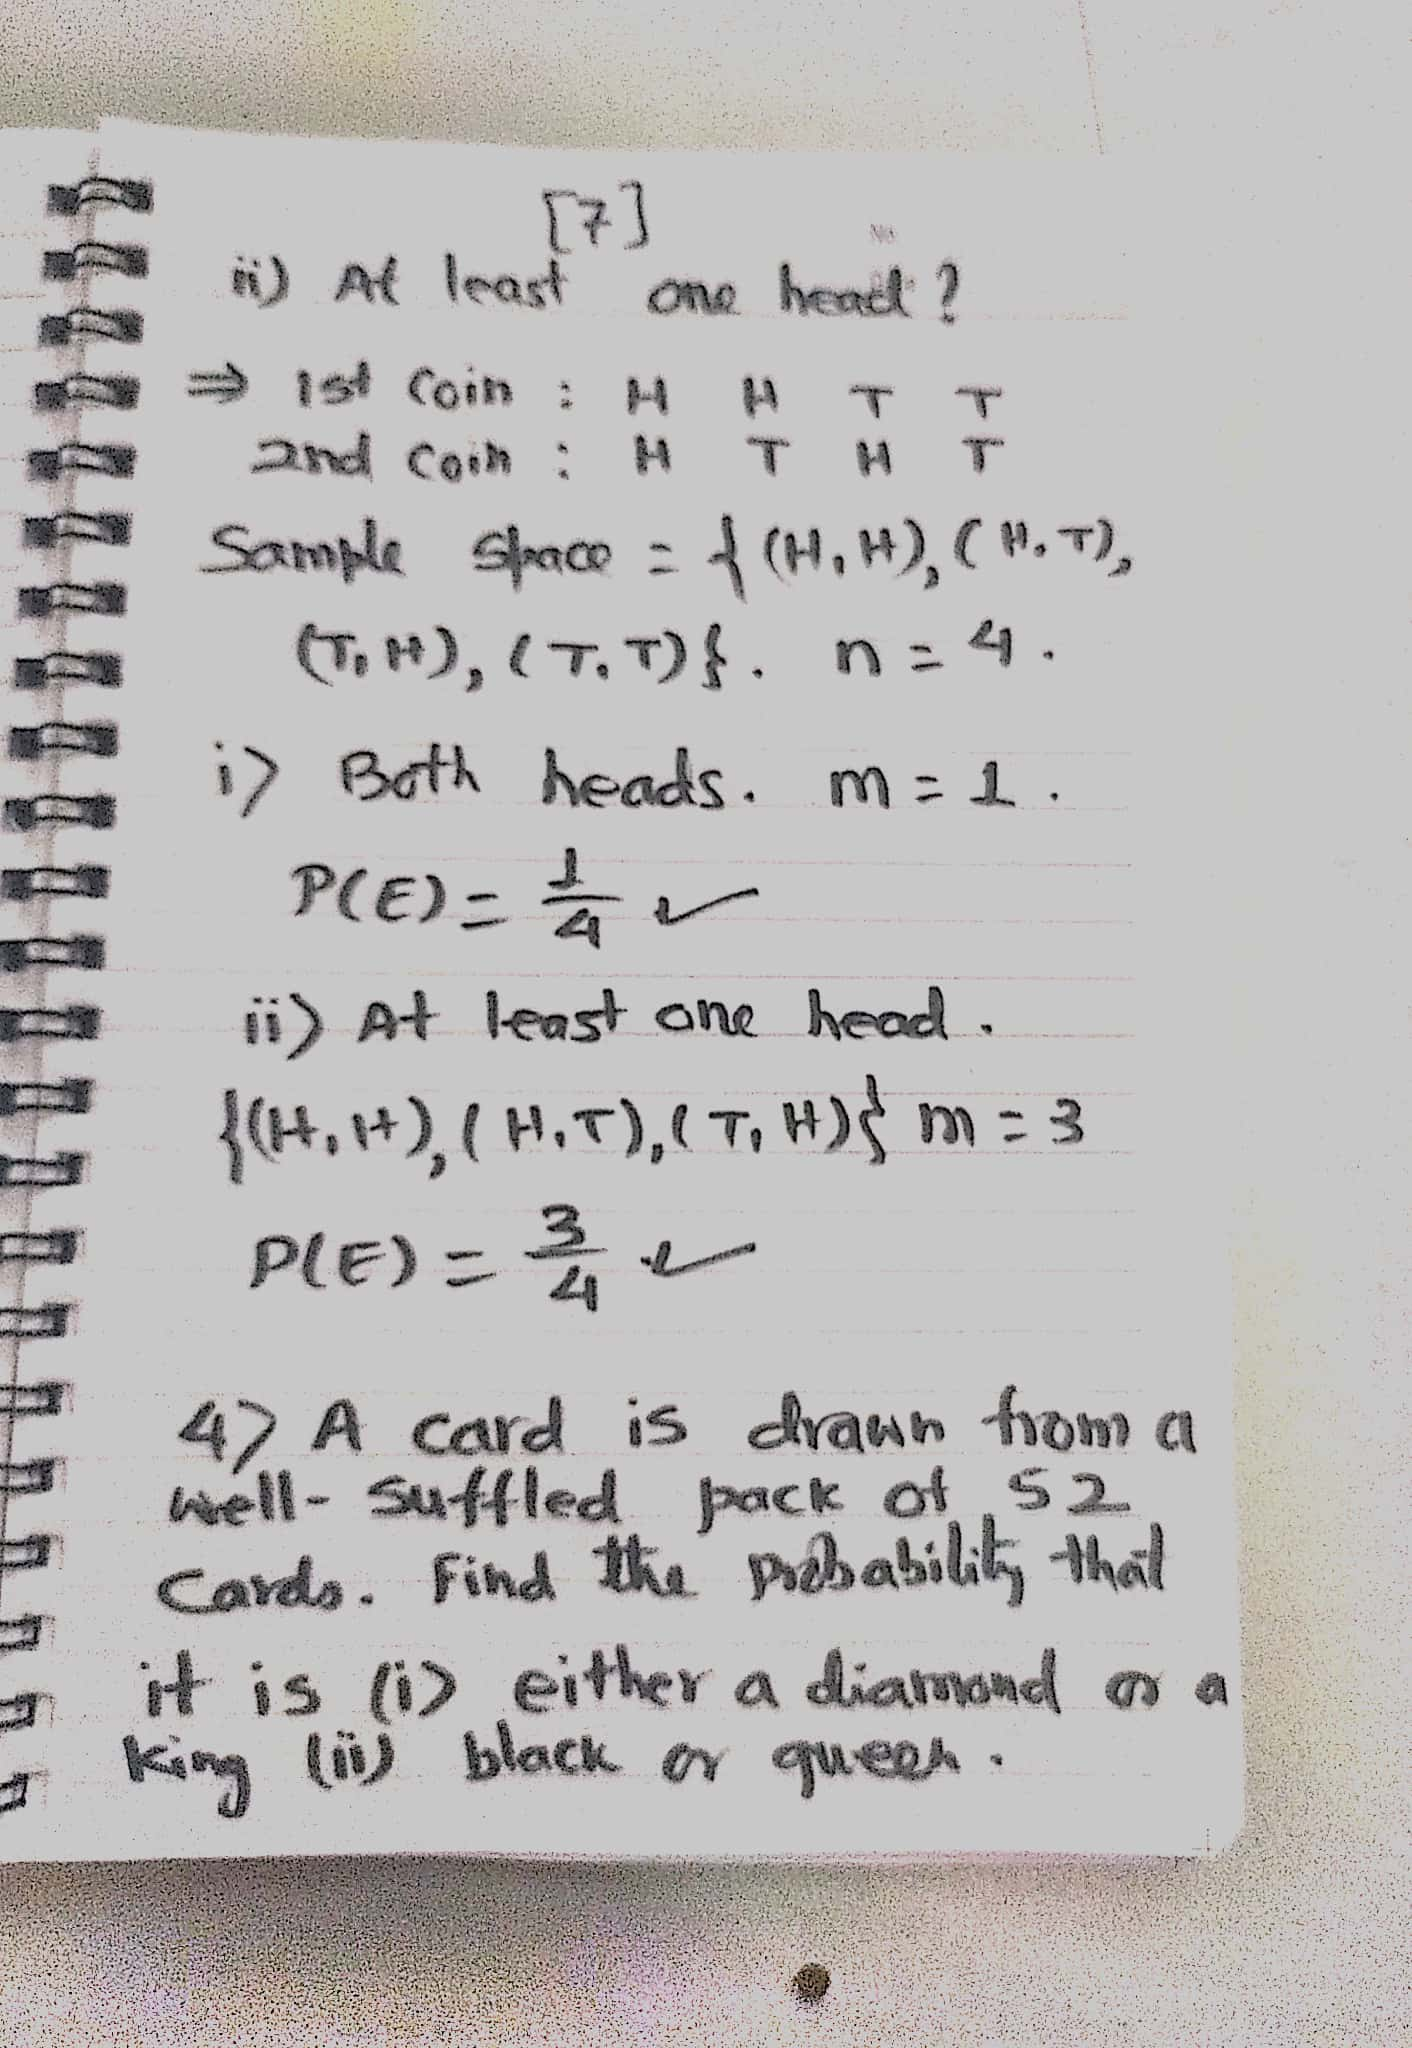 [7]
ii) At least one head?
⇒ 1st Coin : H H T T
2nd Coin : H T H T
Sample space = {(H, H), (H, T),
(T, H), (T, T)}. n = 4.
i) Both heads. m = 1.
P(E) = 1/4 ✓
ii) At least one head.
{(H, H), (H, T), (T, H)} m = 3
P(E) = 3/4 ✓
4) A card is drawn from a
well-suffled pack of 52
Cards. Find the probability that
it is (i) either a diamond or a
king (ii) black or queen.